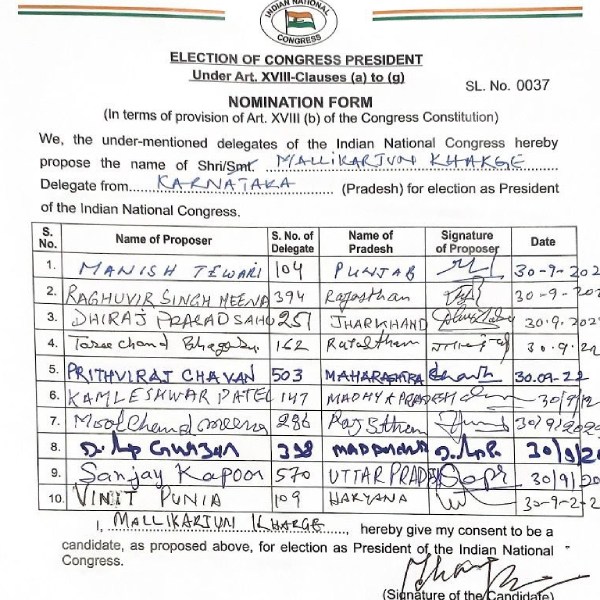 INDIAN NATIONAL CONGRESS
ELECTION OF CONGRESS PRESIDENT
Under Art. XVIII-Clauses (a) to (g)
SL. No. 0037
NOMINATION FORM
(In terms of provision of Art. XVIII (b) of the Congress Constitution)
We, the under-mentioned delegates of the Indian National Congress hereby
propose the name of Shri/Smt. MALLIKARJUN KHARGE
Delegate from KARNATAKA (Pradesh) for election as President
of the Indian National Congress.
S. No. Name of Proposer S. No. of Delegate Name of Pradesh Signature of Proposer Date
1. MANISH TEWARI 104 PUNJAB 30-9-202
2. RAGHUVIR SINGH MEENA 394 Rajasthan 30-9-
3. DHIRAJ PRASAD SAHU 251 JHARKHAND 30.9.202
4. Tarachand 162 Rajasthan 30.9.
5. PRITHVIRAJ CHAVAN 503 MAHARASHTRA 30.09-22
6. KAMLESHWAR PATEL 147 MADHYA PRADESH 30/9/2
7. Moolchand meena 296 Rajasthan 30/9/202
8. 398 30/9/20
9. Sanjay Kapoor 570 UTTAR PRADESH 30/9/20
10. VINIT PUNIA 109 HARYANA 30-9-2
I, MALLIKARJUN KHARGE, hereby give my consent to be a
candidate, as proposed above, for election as President of the Indian National
Congress.
(Signature of the Candidate)